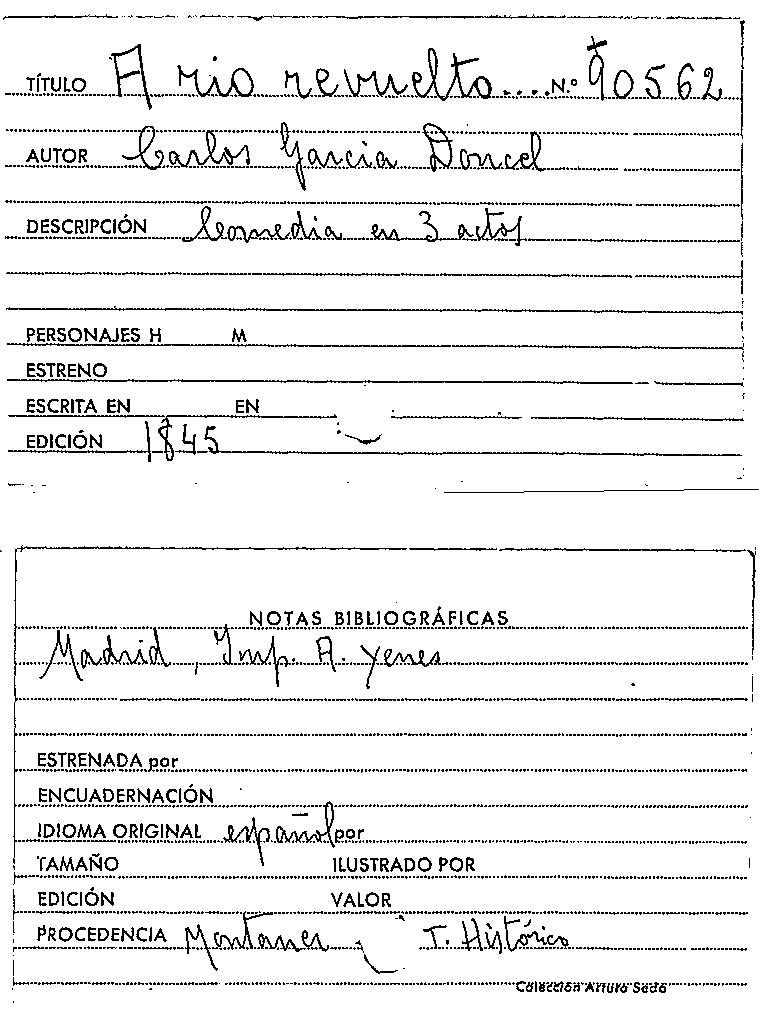 TÍTULO A rio revuelto.... N.º 90562
AUTOR Carlos Garcia Doncel
DESCRIPCIÓN Comedia en 3 actos
PERSONAJES H M
ESTRENO
ESCRITA EN EN
EDICIÓN 1845
NOTAS BIBLIOGRÁFICAS
Madrid, Imp. A. Yenes
ESTRENADA por
ENCUADERNACIÓN
IDIOMA ORIGINAL español por
TAMAÑO ILUSTRADO POR
EDICIÓN VALOR
PROCEDENCIA Montaner T. Histórico
Colección Arturo Sedó